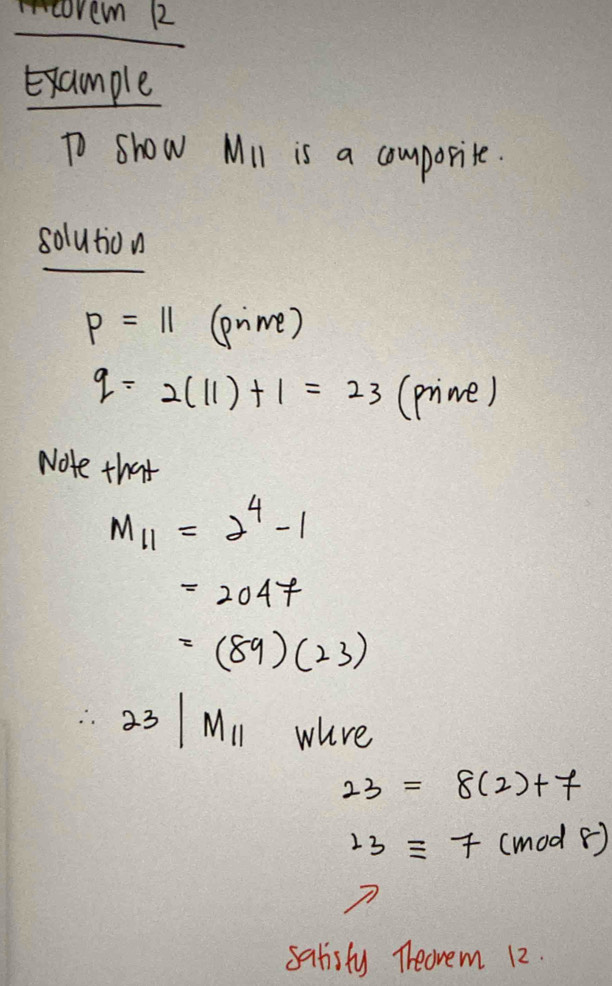 Theorem 12
Example
To show M11 is a composite.
Solution
p = 11 (prime)
q = 2(11) + 1 = 23 (prime)
Note that
M₁₁ = 2⁴ - 1
= 2047
= (89)(23)
∴ 23 | M₁₁ where
23 = 8(2) + 7
23 ≡ 7 (mod 8)
↗
Satisfy Theorem 12.